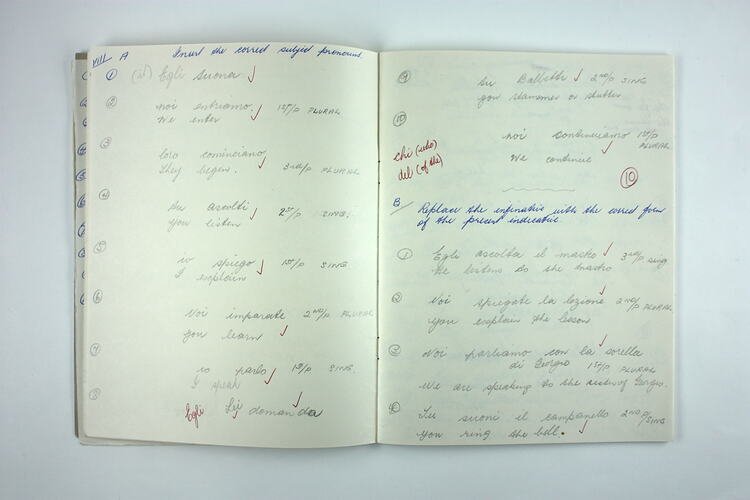 VIII A Insert the correct subject pronouns.
① (il) Egli suona ✓
② noi entriamo ✓ 1ST/P PLURAL
We enter
③ loro cominciano ✓
They begin. 3RD/P PLURAL
④ tu ascolti ✓ 2ST/P SING.
You listen
⑤ io spiego ✓ 1ST/P SING.
I explain
⑥ Voi imparate 2ND/P PLURAL
you learn ✓
⑦ io parlo 1ST/P SING.
I speak ✓
⑧ Egli domanda ✓
⑨ tu Balbetti ✓ 2ND/P SING
you stammer or stutter
⑩ noi continuiamo 1ST/P PLURAL
We continue ✓
chi (who)
del (of the)
⑩
B/ Replace the infinitive with the correct form
of the present indicative.
① Egli ascolta il mastro ✓ 3RD/P sing
He listens to the mastro
② Voi spiegate la lezione ✓ 2ND/P PLURAL
you explain the lesson
③ Noi parliamo con la sorella ✓
di Giorgio 1ST/P PLURAL
We are speaking to the sister of Giorgio.
④ Tu suoni il campanello 2ND P/SING
you ring the bell. ✓